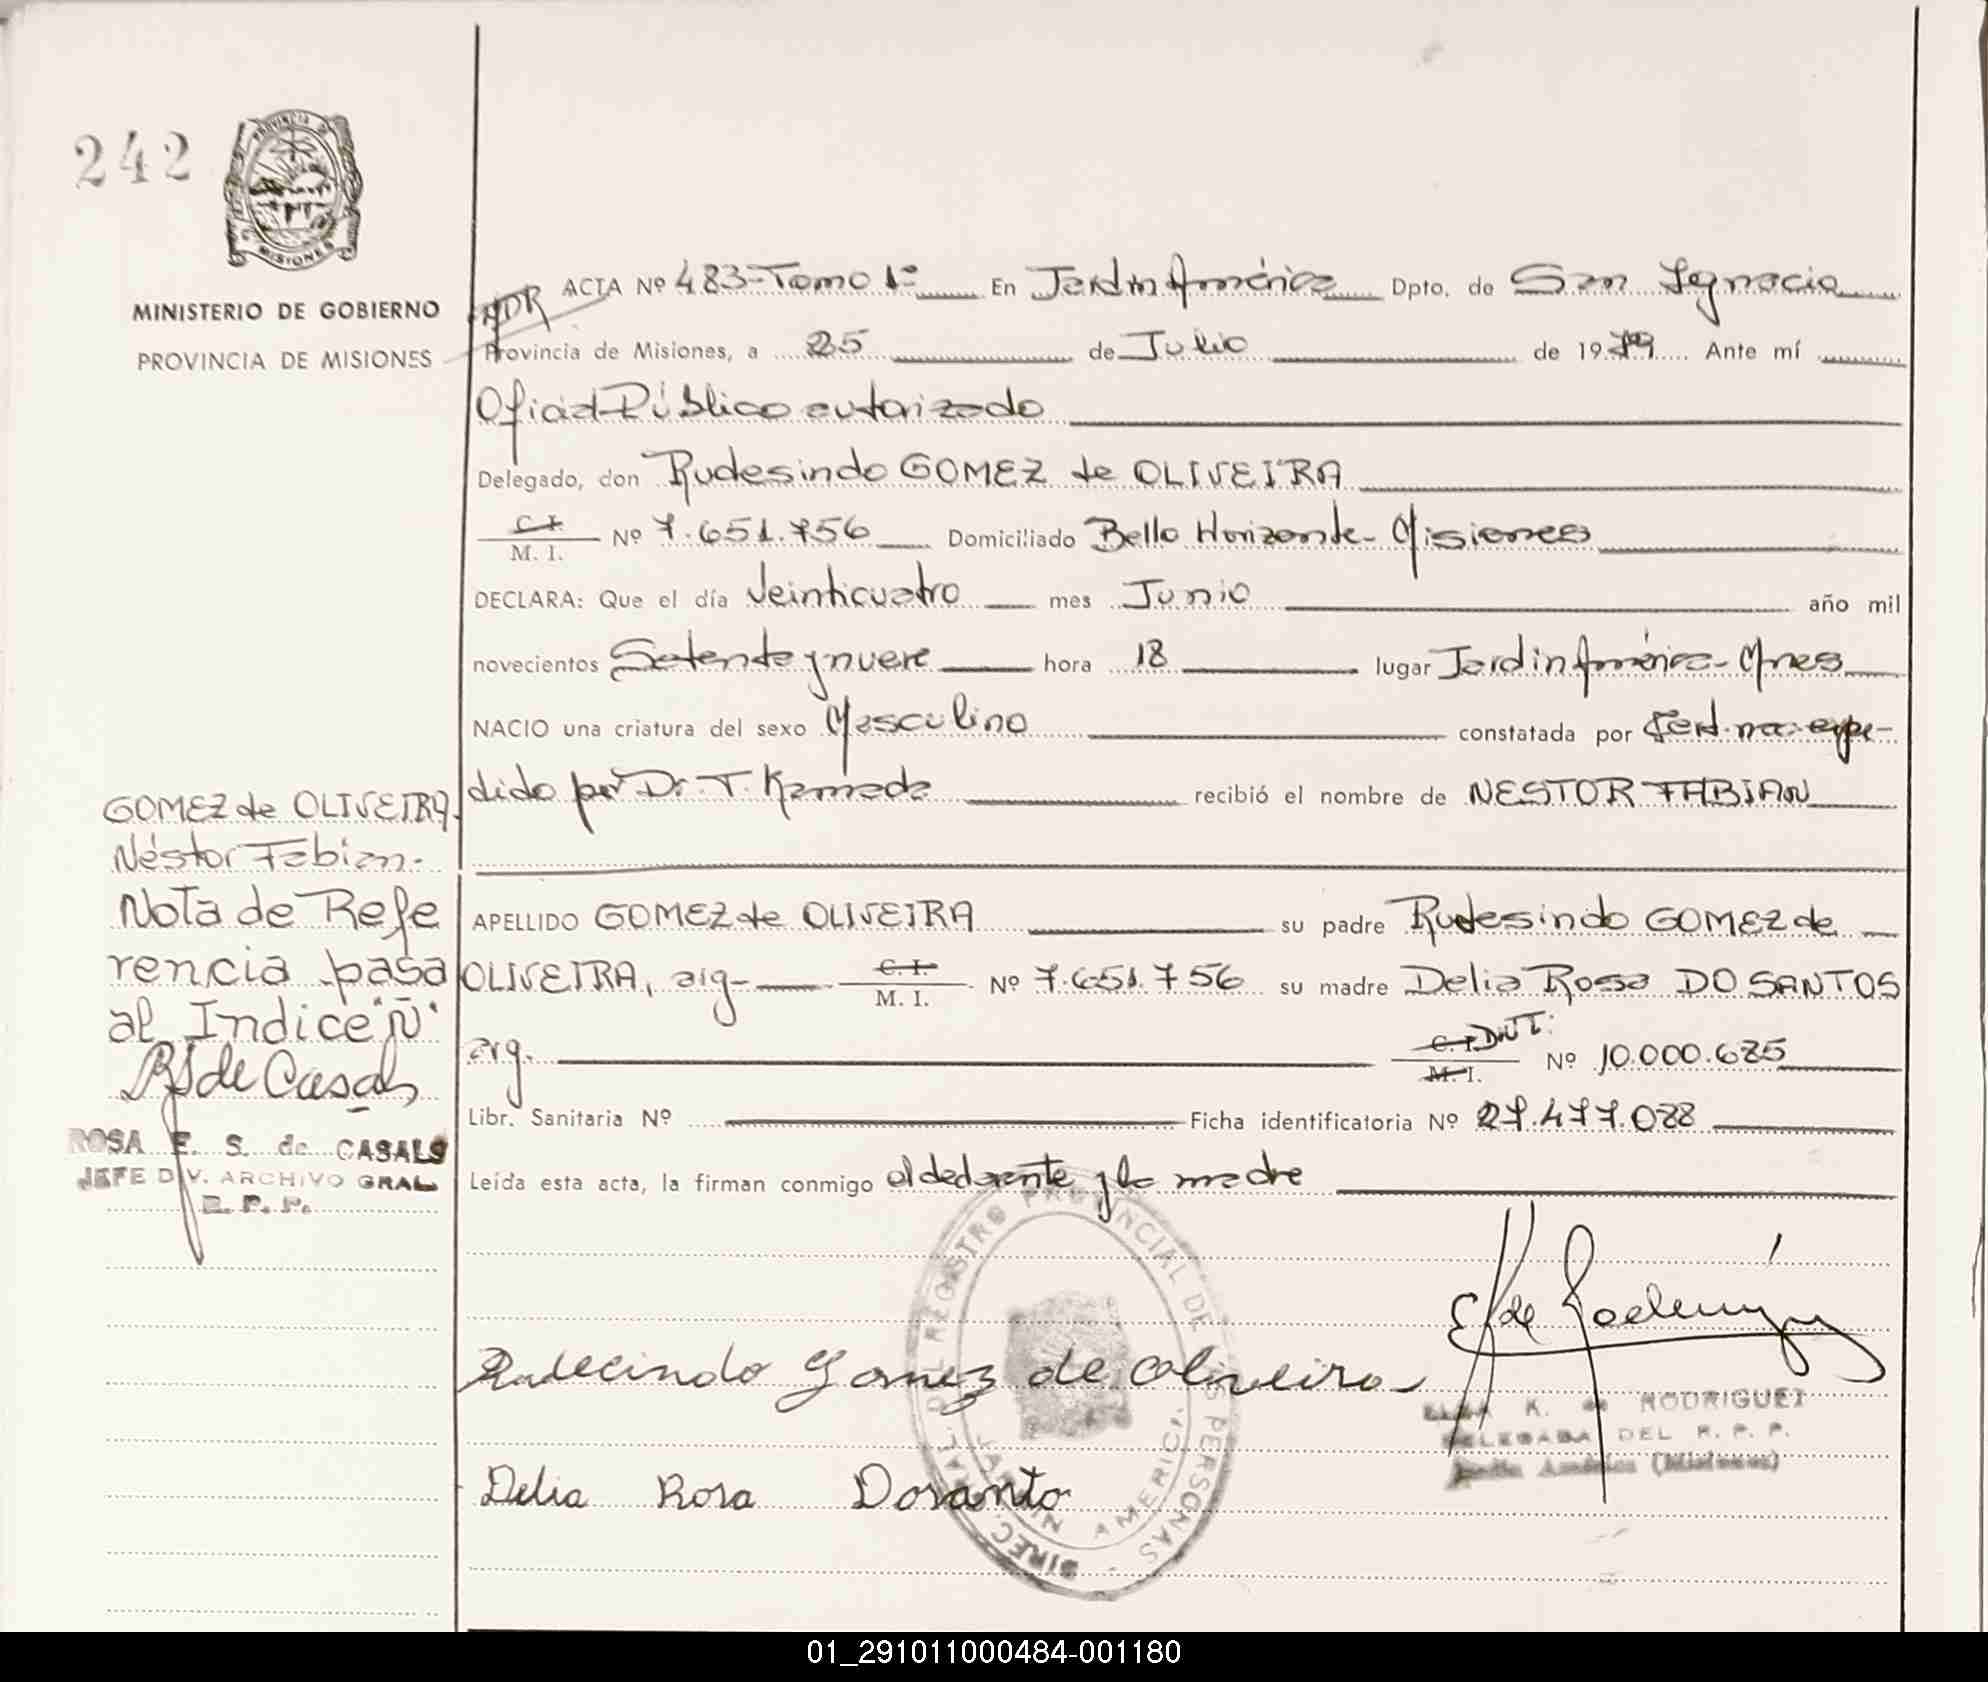 242
PROVINCIA DE
MISIONES
MINISTERIO DE GOBIERNO
PROVINCIA DE MISIONES
ADR ACTA Nº 483-Tomo 1º En Jardin América Dpto. de San Ignacio
Provincia de Misiones, a 25 de Julio de 1979 Ante mí
Oficial Público autorizado
Delegado, don Rudesindo GOMEZ de OLIVEIRA
C. I.
M. I. Nº 7.651.756 Domiciliado Bello Horizonte- Misiones
DECLARA: Que el día Veinticuatro mes Junio año mil
novecientos Setenta y nueve hora 18 lugar Jardin América- Mnes
NACIO una criatura del sexo Masculino constatada por Cert. nac. expe-
dido por Dr. T. Kameda recibió el nombre de NESTOR FABIAN
APELLIDO GOMEZ de OLIVEIRA su padre Rudesindo GOMEZ de
OLIVEIRA, arg- C. I.
M. I. Nº 7.651.756 su madre Delia Rosa DO SANTOS
arg. C. I. DNI:
M. I. Nº 10.000.685
Libr. Sanitaria Nº Ficha identificatoria Nº 27.477.088
Leída esta acta, la firman conmigo el declarante y la madre
GOMEZ de OLIVEIRA.
Néstor Fabian.-
Nota de Refe
rencia pasa
al Indice "Ñ"
RS de Casals
ROSA E. S. de CASALS
JEFE DIV. ARCHIVO GRAL
R. P. P.
DIREC. GRAL. DEL REGISTRO PROVINCIAL DE LAS PERSONAS
JARDIN AMERICA
Rudecindo Gomez de Oliveira
ELSA K. de RODRIGUEZ
DELEGADA DEL R. P. P.
Jardín América (Misiones)
Delia Rosa Dosanto
01_291011000484-001180